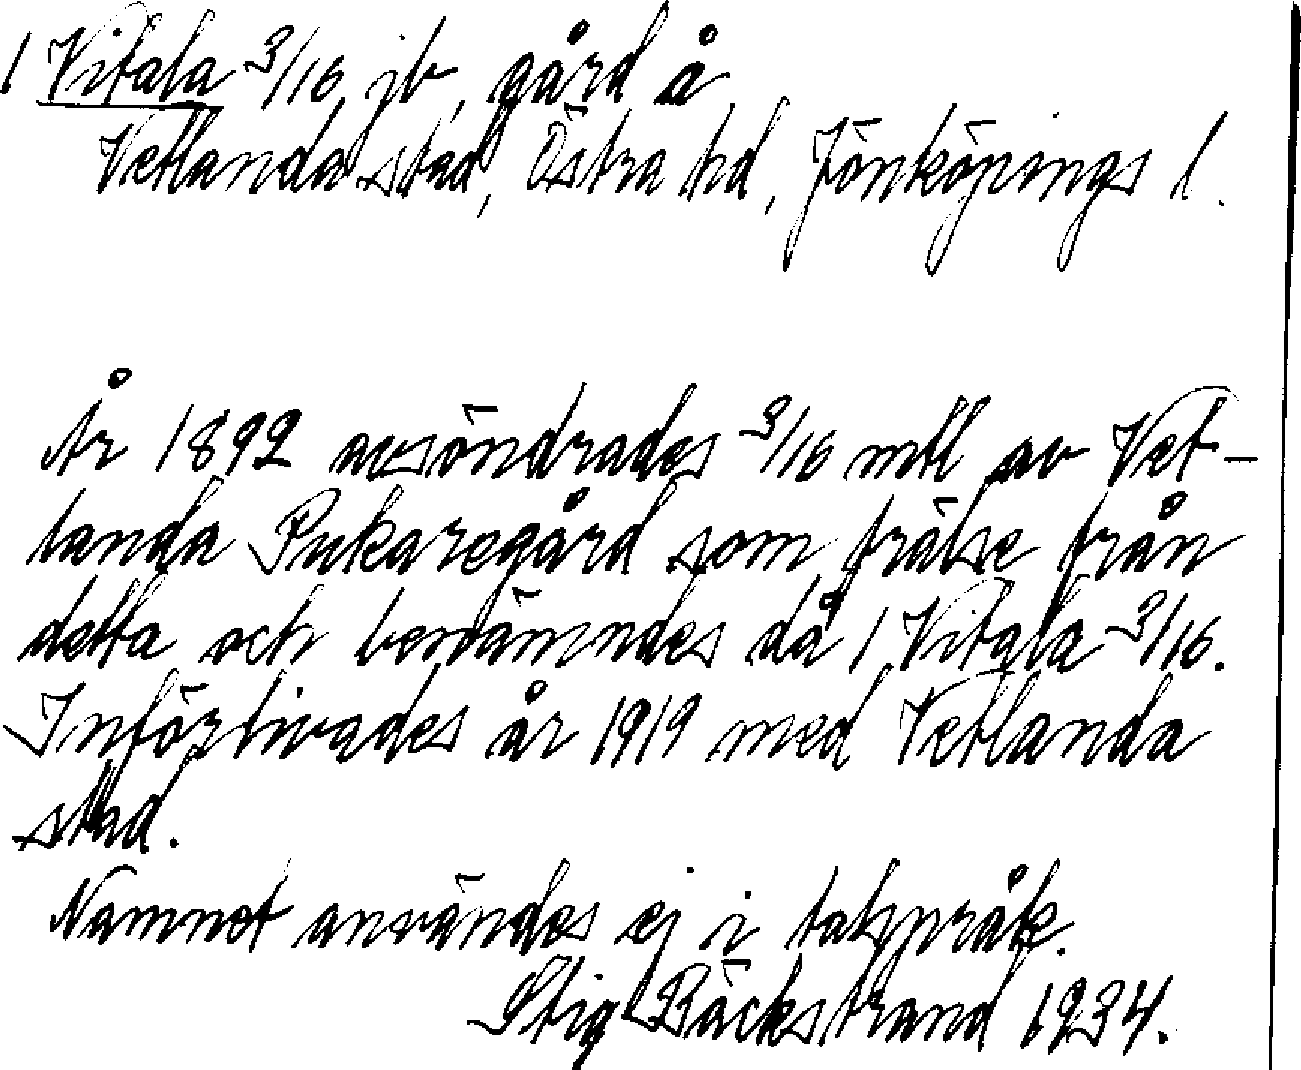 1 Vitala 3/16 jb, gård å
Vetlanda stad, Östra hd, Jönköpings l.
År 1892 avsöndrades 3/16 mtl av Vet-
landa Pukaregård som frälse från
detta och benämndes då 1 Vitala 3/16.
Införlivades år 1919 med Vetlanda
stad.
Namnet användes ej i talspråk.
Stig Bäckstrand 1934.